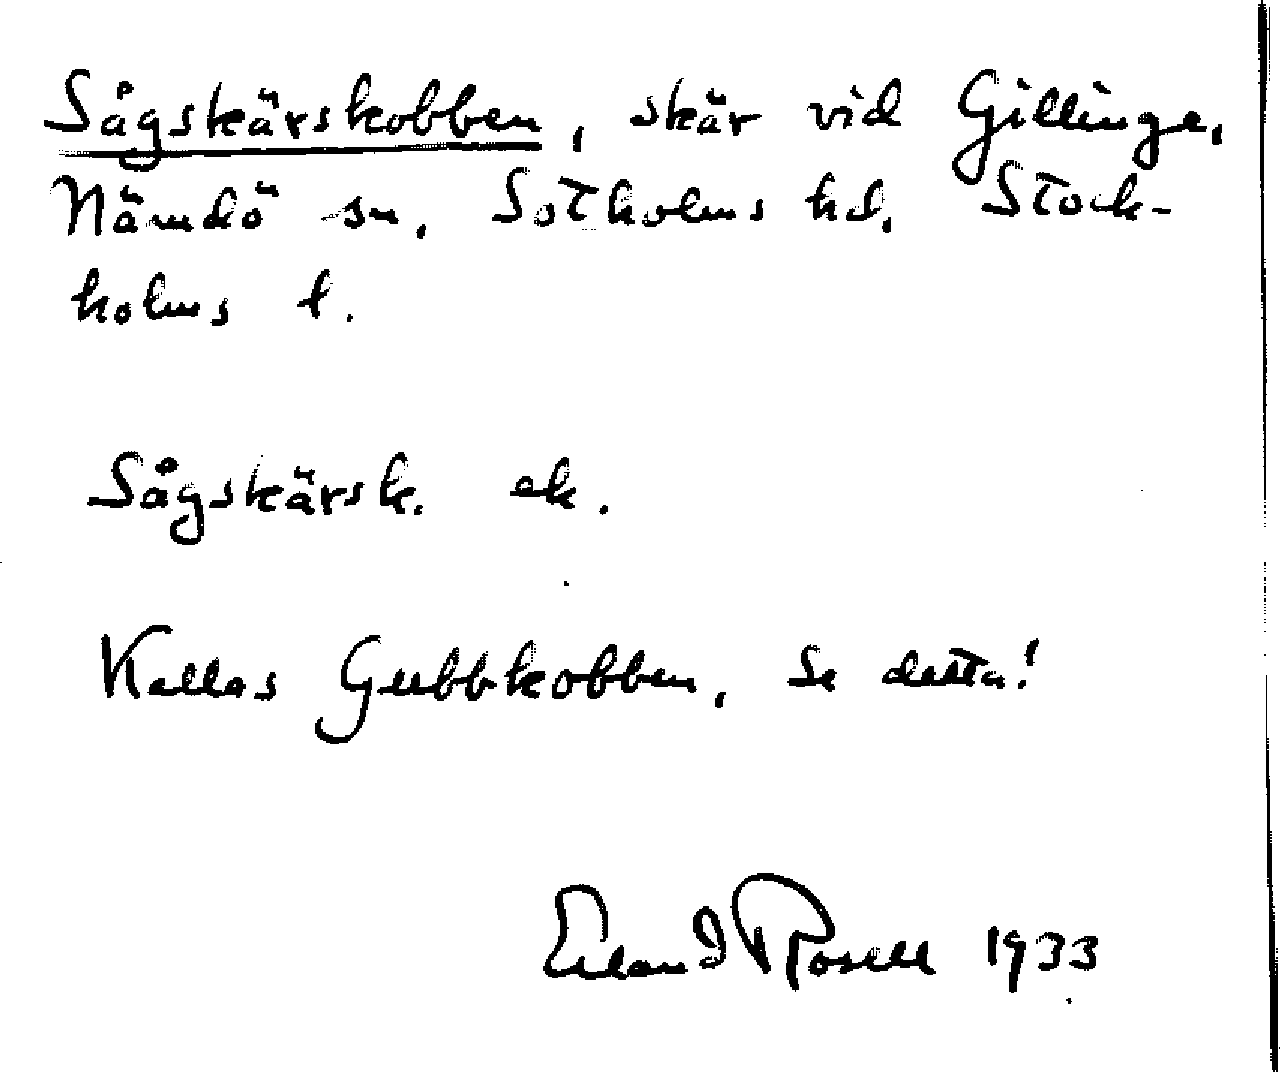 Sågskärskobben, skär vid Gillinge,
Nämdö sn, Sotholms hd, Stock-
holms l.
Sågskärsk. ek.
Kallas Gubbkobben, se detta!
Erland Rosell 1933